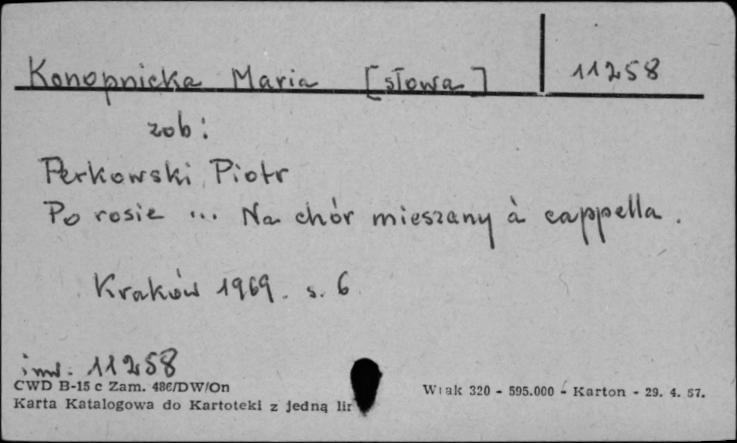 Konopnicka Maria [słowa] 11258
zob:
Perkowski Piotr
Po rosie ... Na chór mieszany à cappella.
Kraków 1969. s. 6
inw. 11258
CWD B-15 c Zam. 486/DW/On
Karta Katalogowa do Kartoteki z jedną
Wsak 320 - 595.000 - Karton - 29. 4. 57.